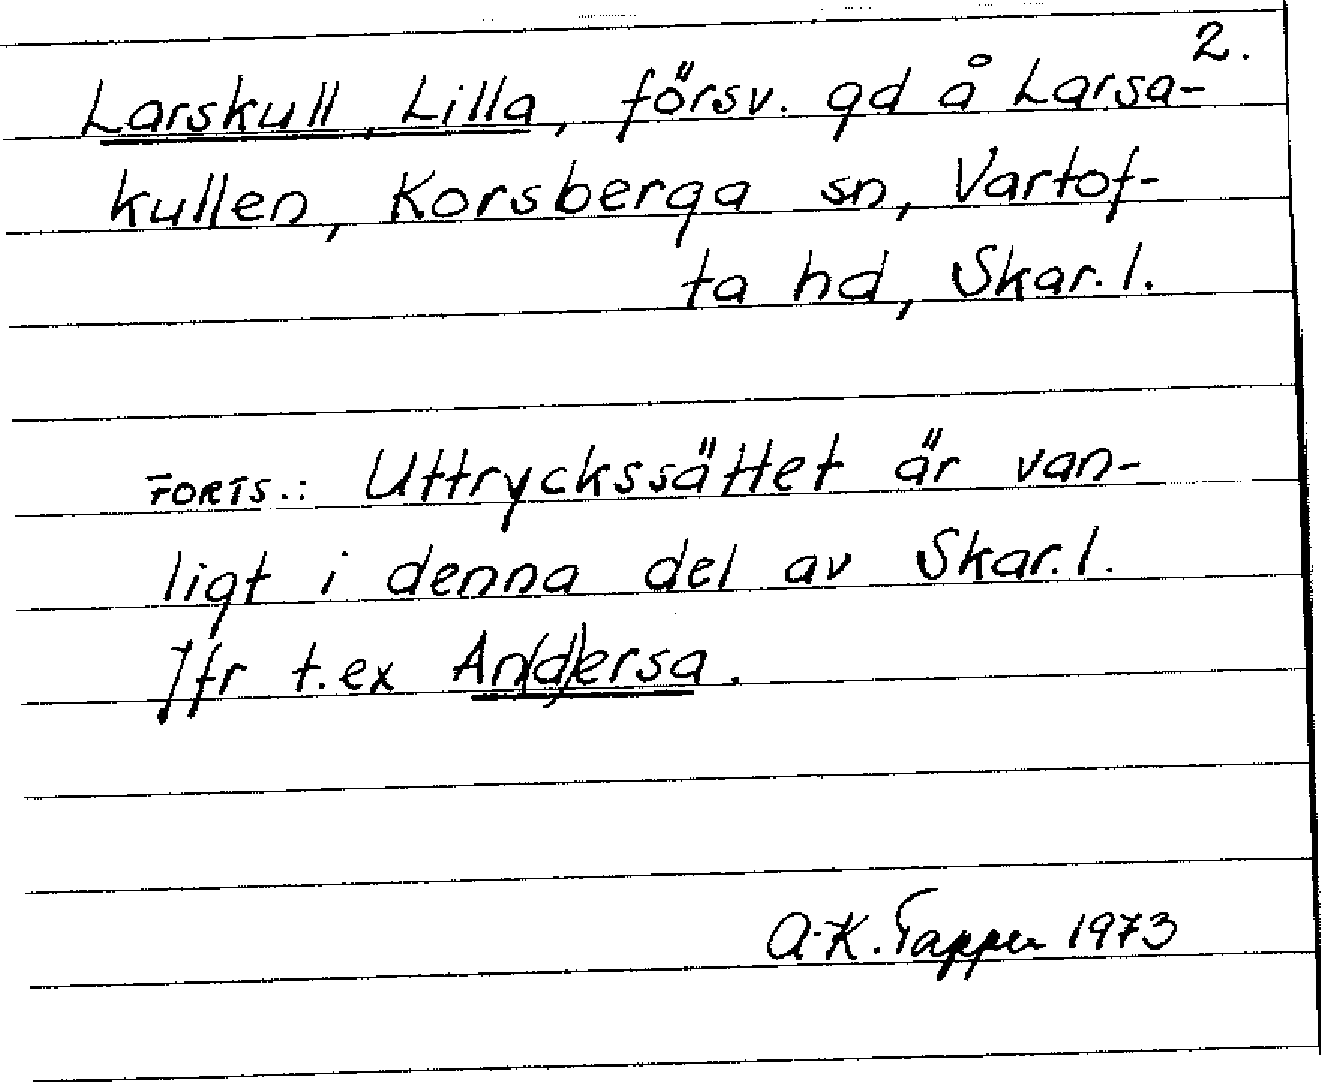 2.
Larskull, Lilla, försv. gd å Larsa-
kullen, Korsberga sn, Vartof-
ta hd, Skar. l.
FORTS.: Uttryckssättet är van-
ligt i denna del av Skar. l.
Jfr t.ex An(d)ersa.
A-K. Tapper 1973